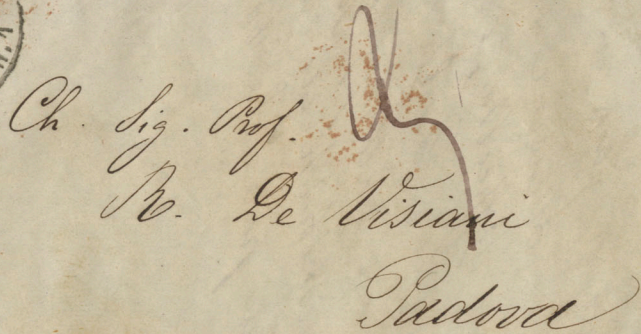 Ch. Sig. Prof.
R. De Visiani
Padova